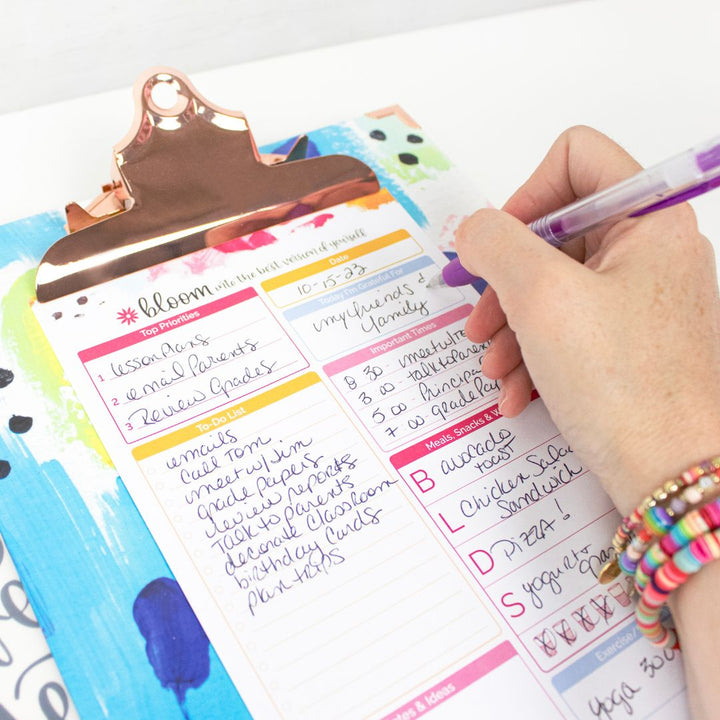 bloom into the best version of yourself
Top Priorities
1 lesson plans
2 email Parents
3 Review Grades
To-Do List
emails
call Tom
meet w/ Jim
grade papers
review reports
Talk to parents
decorate classroom
birthday cards
plan trips
Date
10-15-23
Today I'm Grateful For
my friends &
family
Important Times
8:30 - meet w/ to
3:00 - talk to parent
5:00 - Principa
7:00 - grade pap
Meals, Snacks & W
B avocado
toast
L Chicken Salad
Sandwich
D PIZZA!
S yogurt +
Exercise/
yoga 30
Notes & Ideas